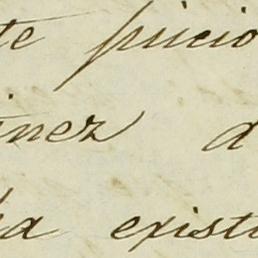 te juicio
inez a
ha exist